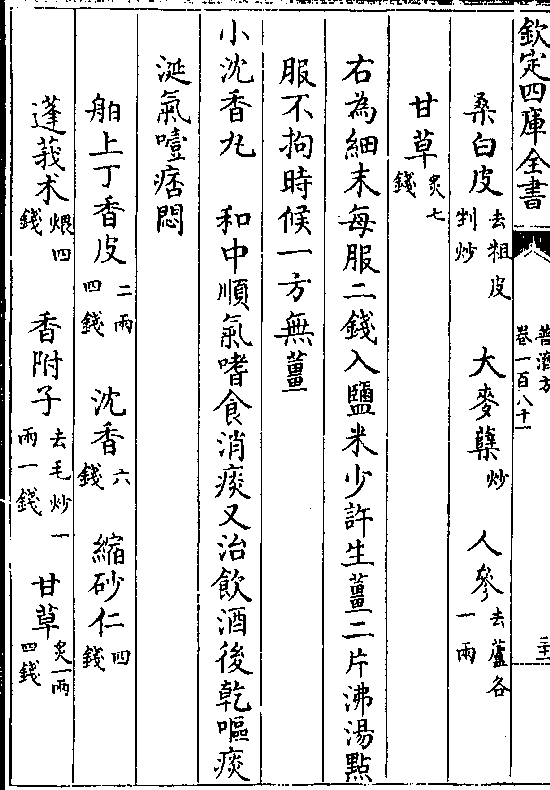 欽定四庫全書
普濟方
卷一百八十一
桑白皮去粗皮剉炒 大麥蘖炒 人參去蘆各一兩
甘草炙七錢
右為細末每服二錢入鹽米少許生薑二片沸湯點
服不拘時候一方無薑
小沈香丸 和中順氣嗜食消痰又治飲酒後乾嘔痰
涎氣噎痞悶
舶上丁香皮二兩四錢 沈香六錢 縮砂仁四錢
蓬莪朮煨四錢 香附子去毛炒一兩一錢 甘草炙一兩四錢